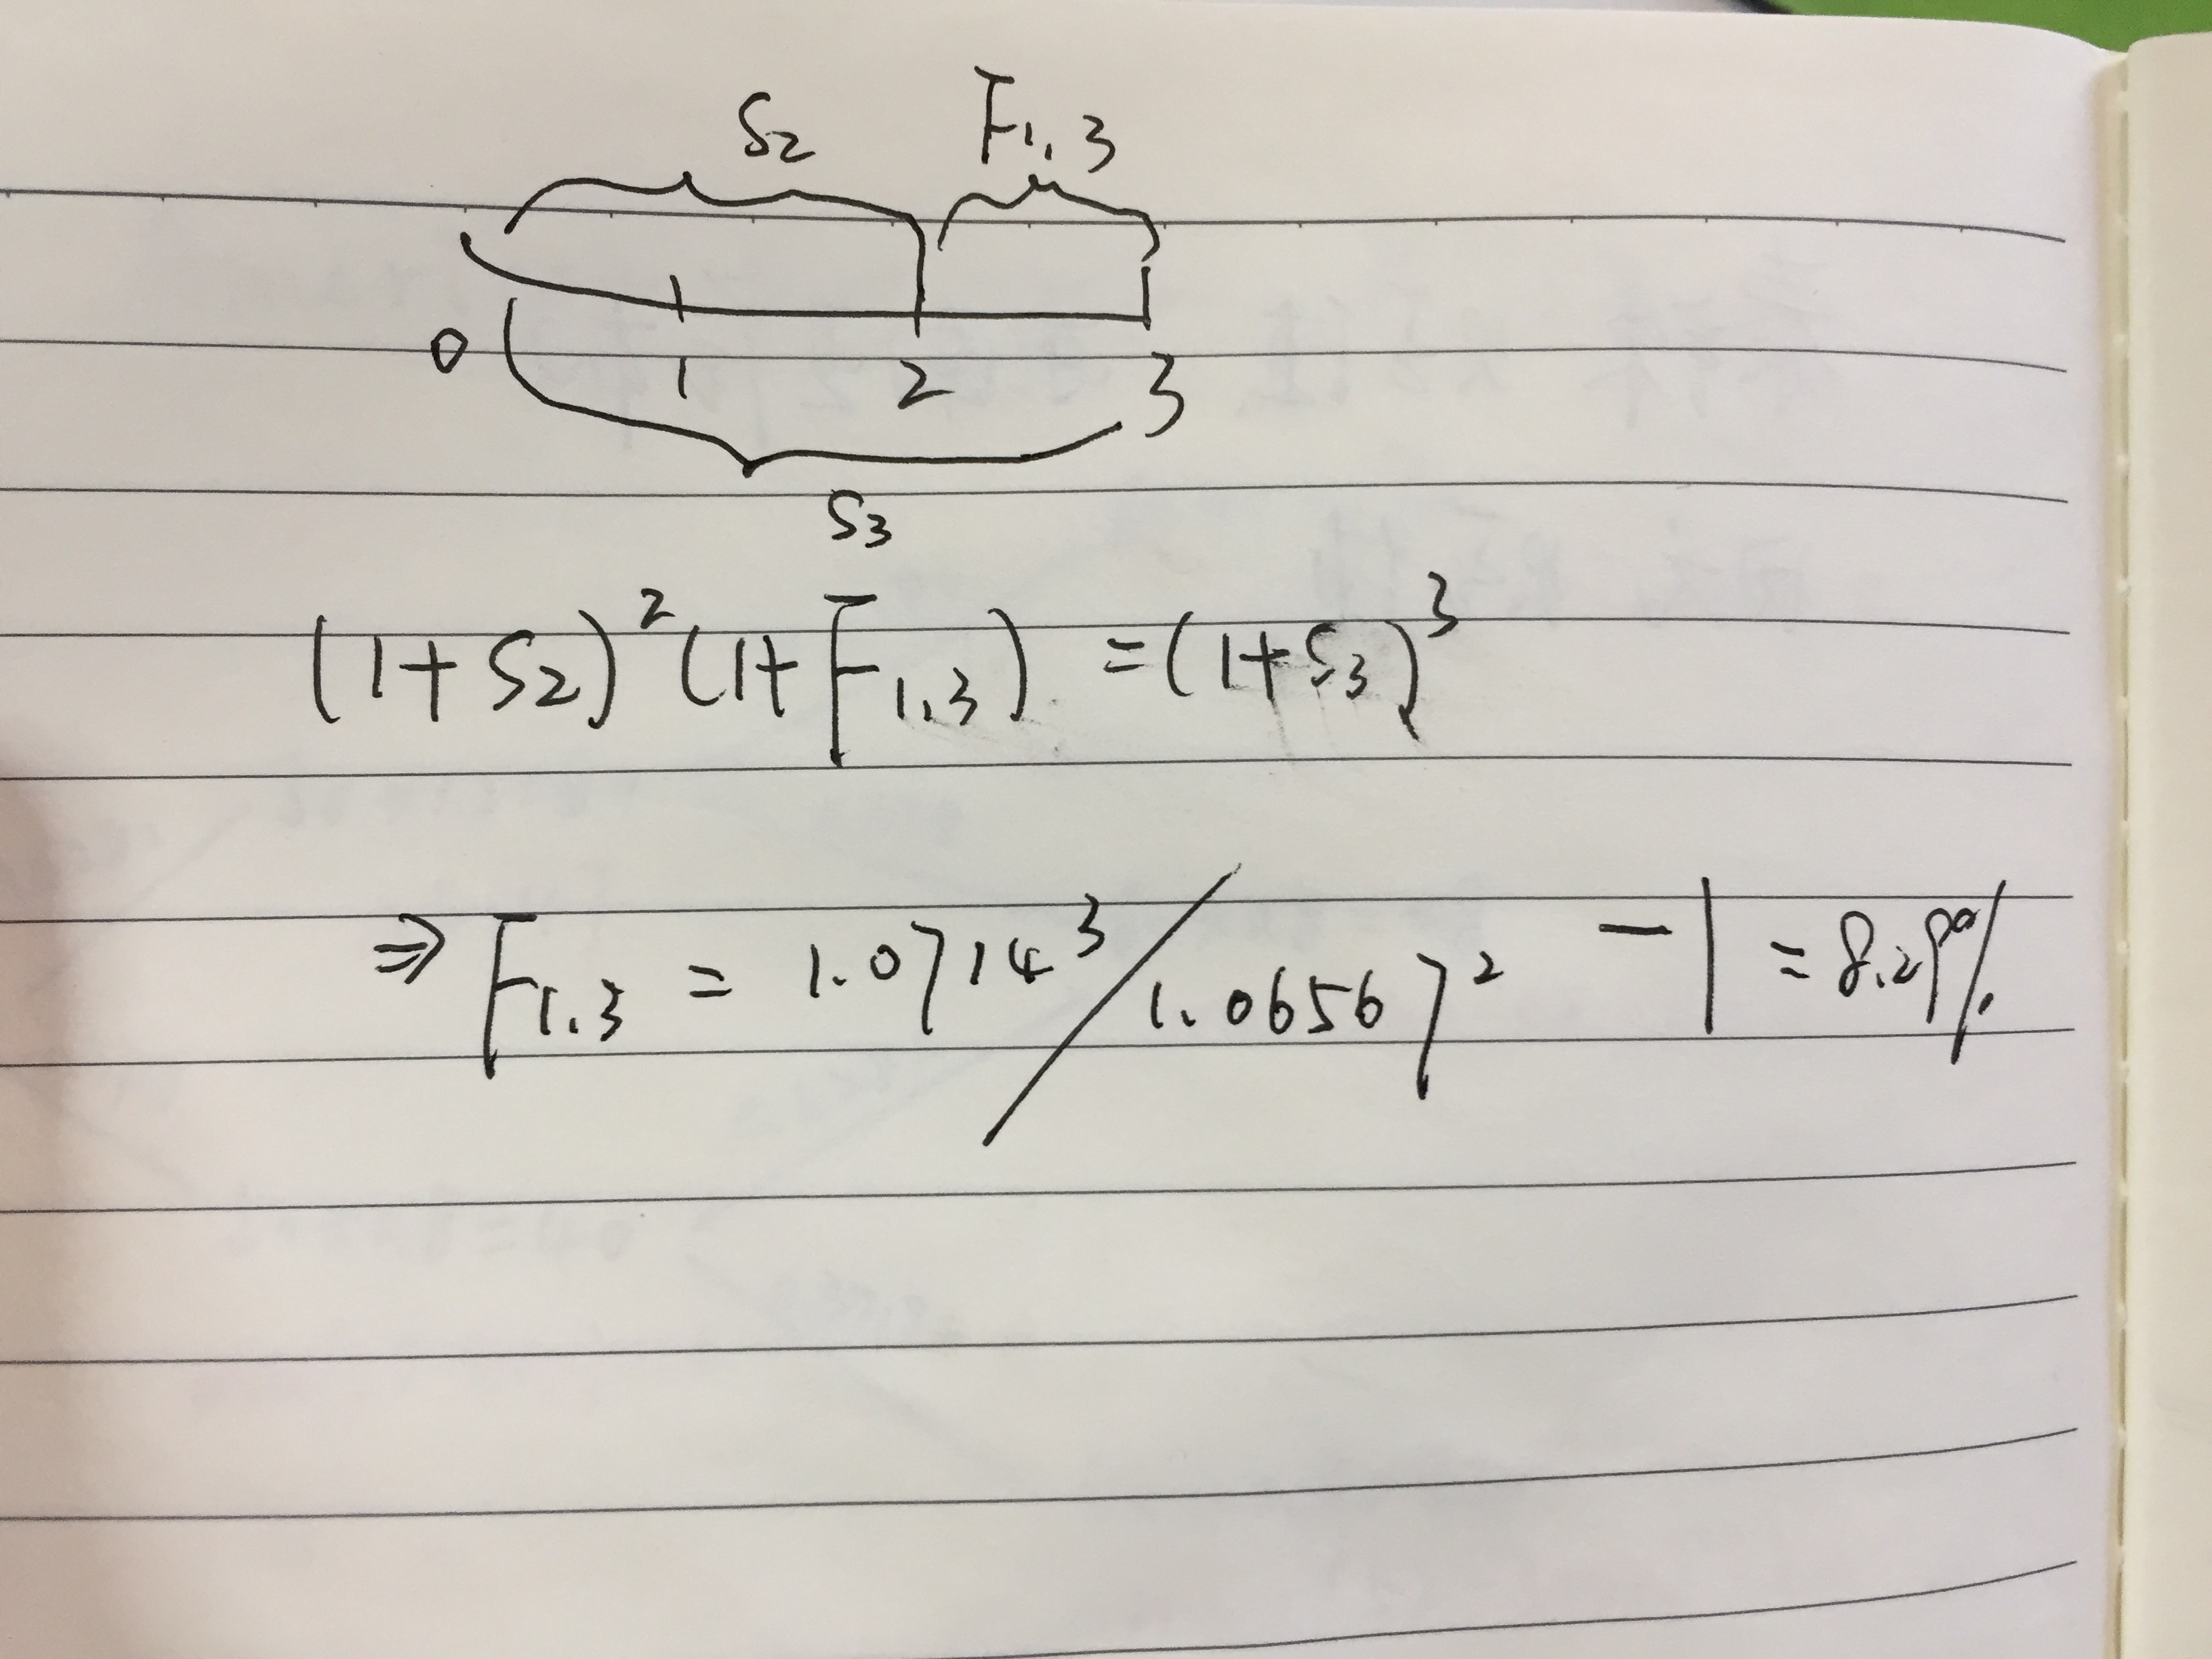 S2 F1,3
0 1 2 3
S3
(1+S2)²(1+F1,3) =(1+S3)³
⇒ F1,3 = 1.0714³/1.06567² -1 = 8.29%